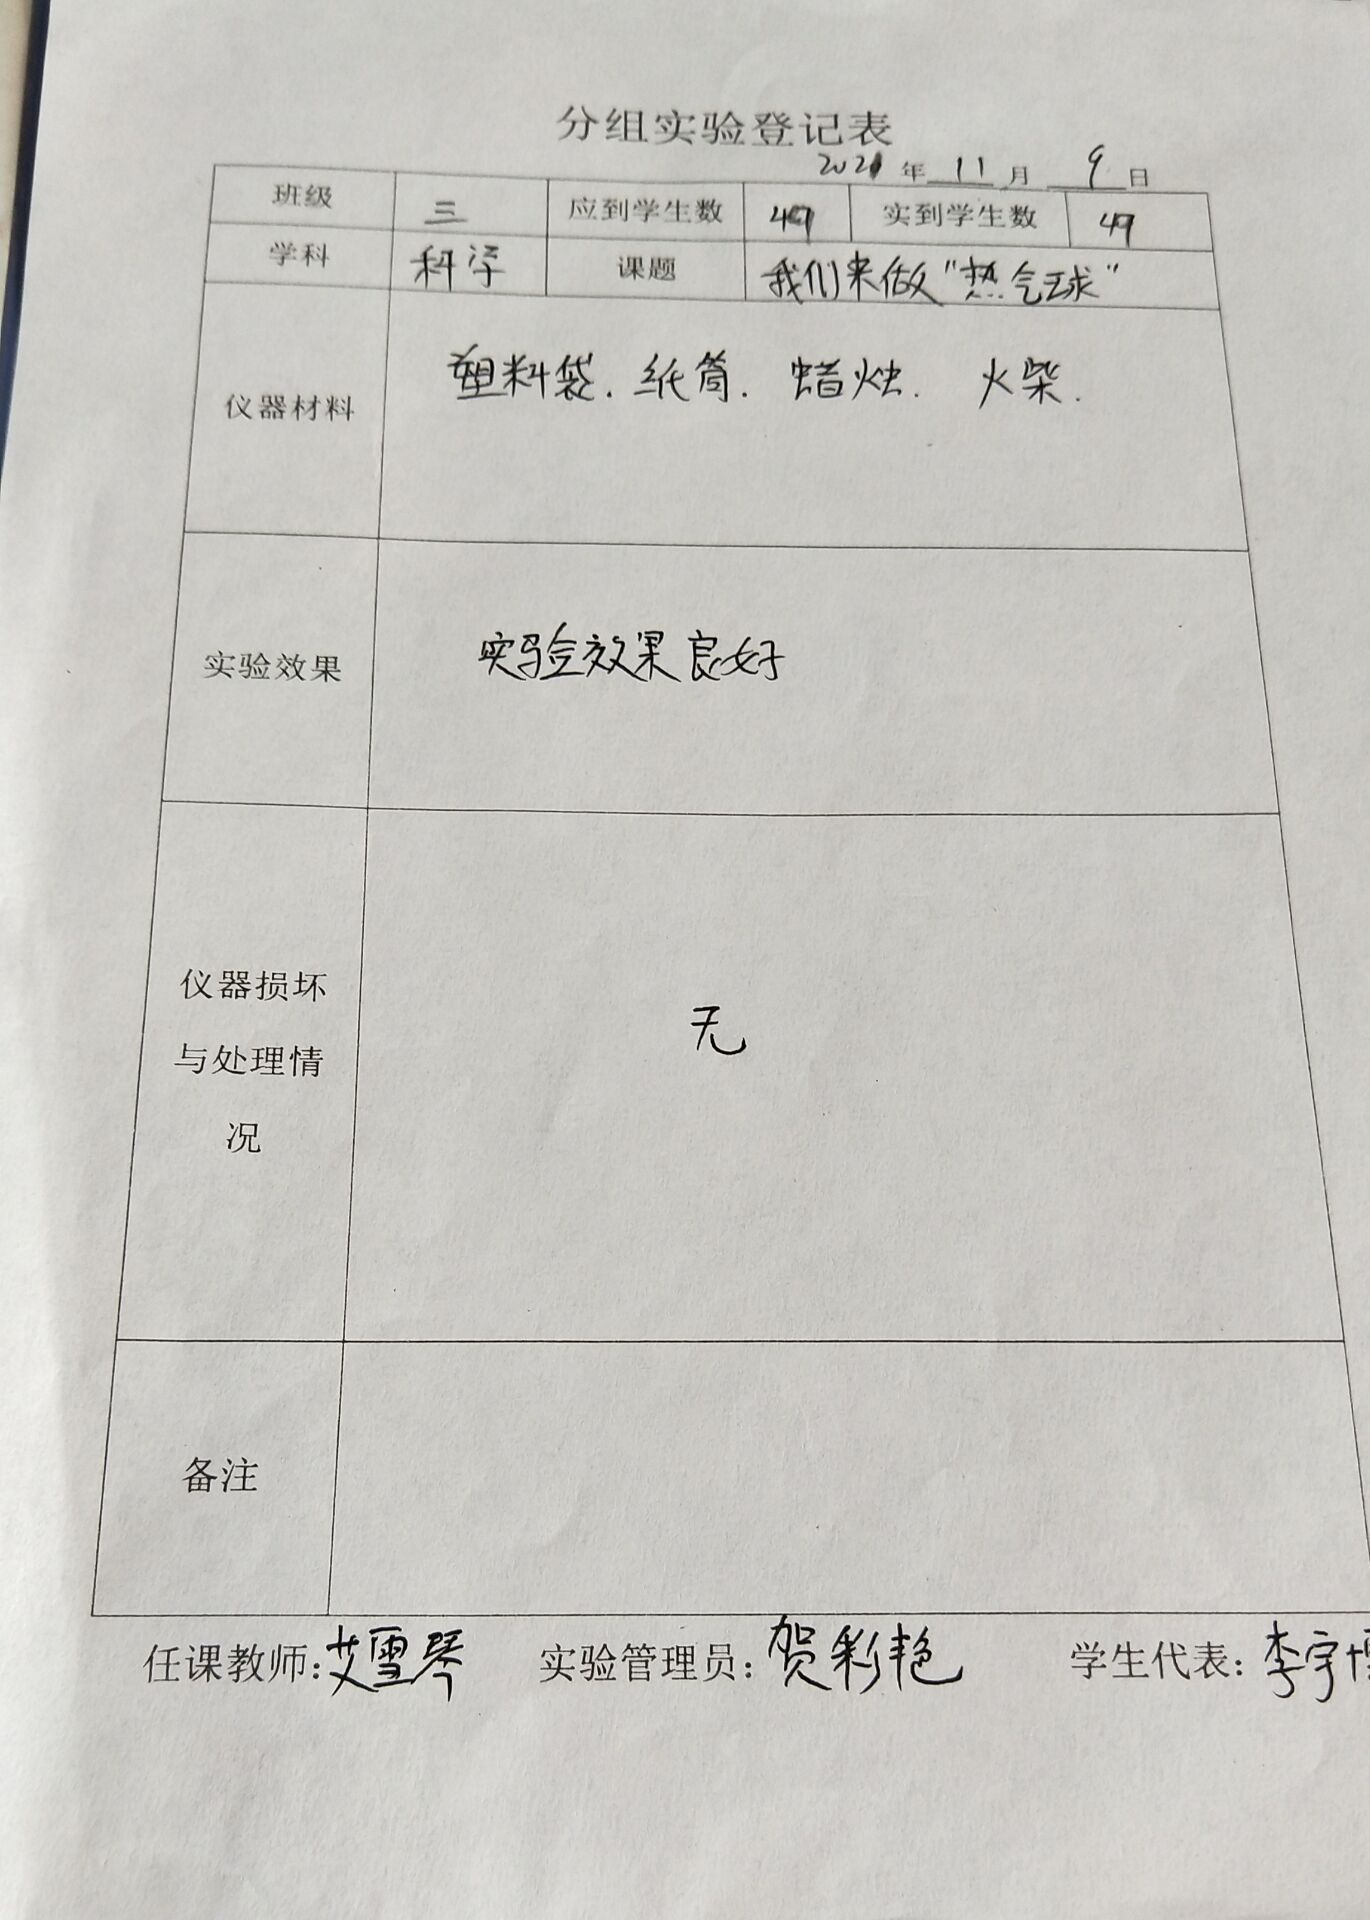 分组实验登记表
2021年11月9日
班级 三 应到学生数 49 实到学生数 49
学科 科学 课题 我们来做“热气球”
仪器材料 塑料袋.纸筒.蜡烛.火柴.
实验效果 实验效果良好
仪器损坏
与处理情 无
况
备注
任课教师:艾雪琴 实验管理员:贺彩艳 学生代表:李宇博